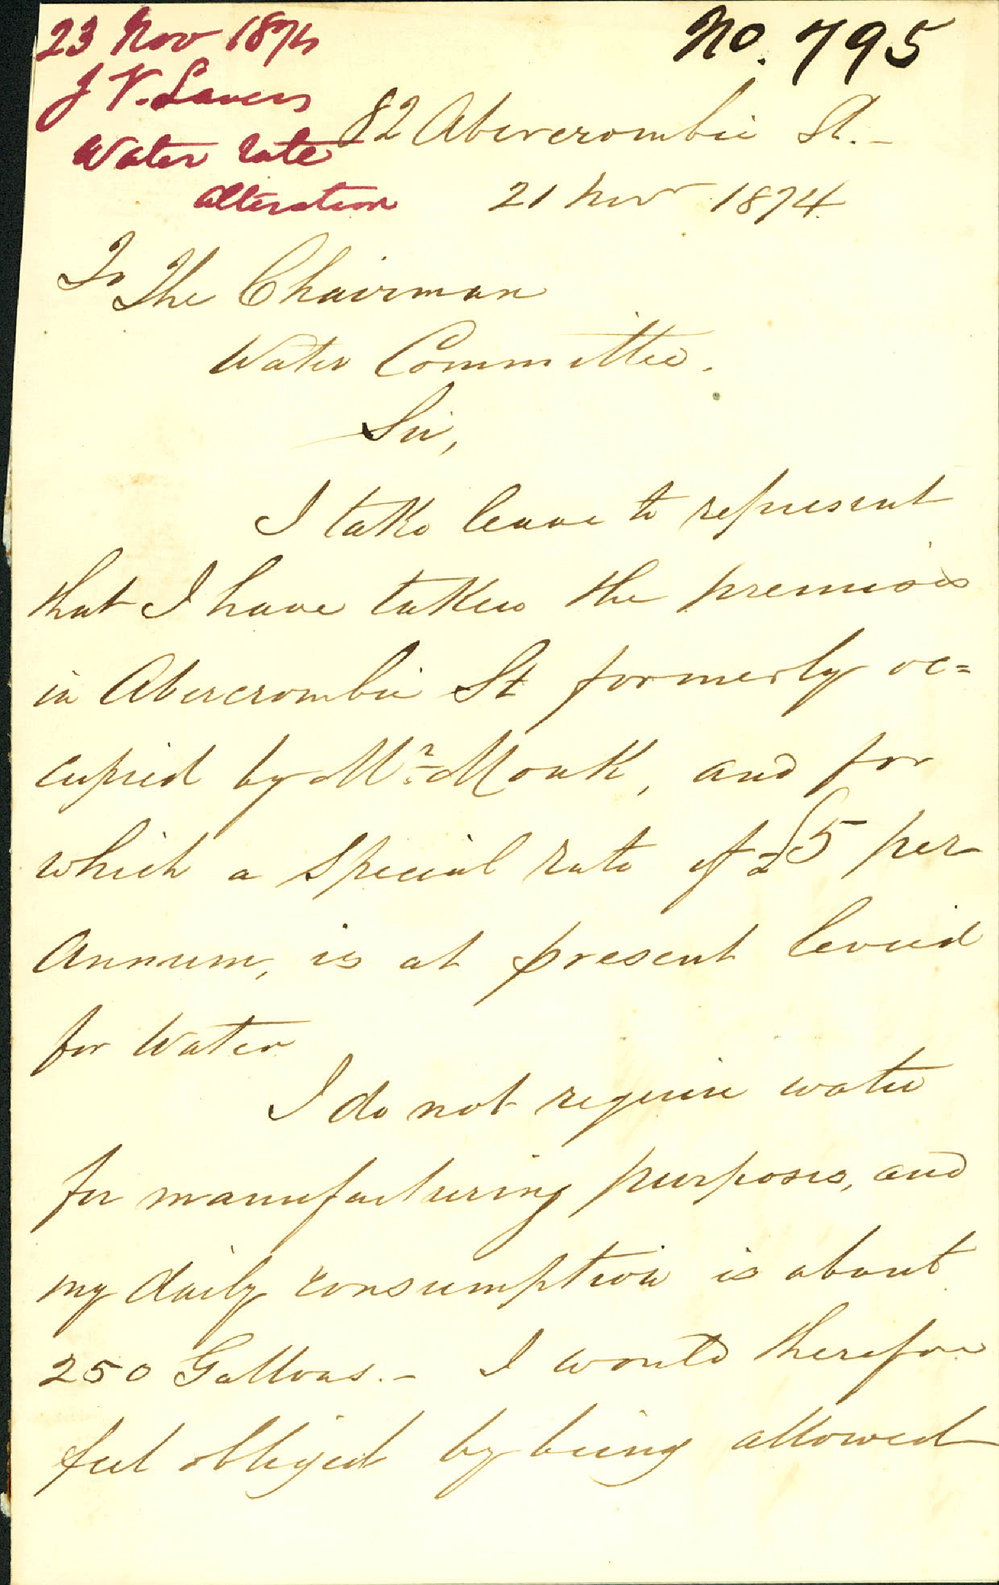 23 Nov 1874
No. 795
J V. Lavers
Water rate
alteration
82 Abercrombie St.-
21 Nov 1874
To The Chairman
Water Committee.
Sir,
I take leave to represent
that I have taken the premises
in Abercrombie St formerly oc=
cupied by Mr. Monk, and for
which a special rate of £5 per
Annum, is at present levied
for Water
I do not require water
for manufacturing purposes, and
my daily consumption is about
250 Gallons.- I would therefore
feel obliged by being allowed